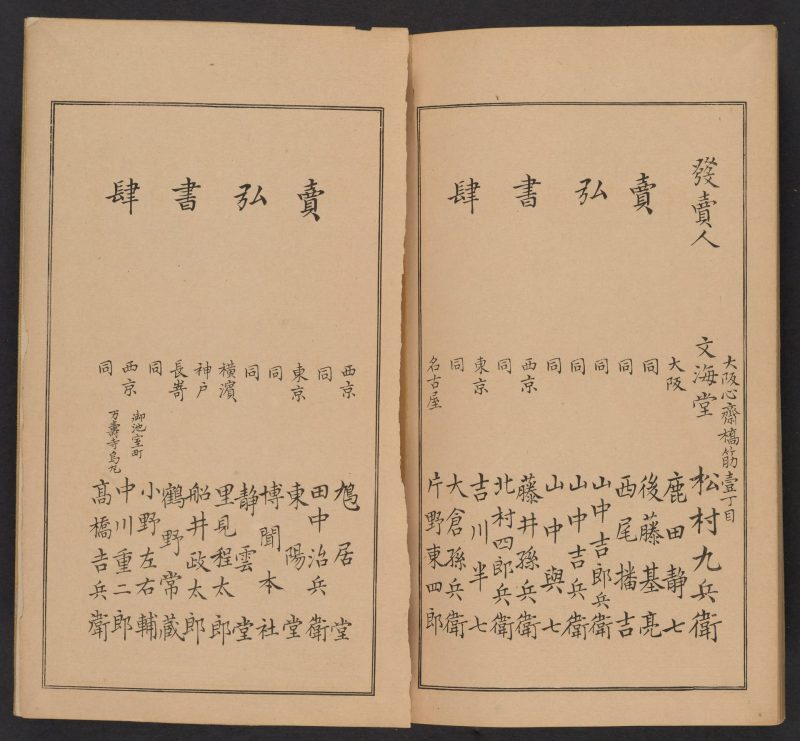 發賣人
大阪心齋橋筋壹丁目
文海堂 松村九兵衛
賣弘書肆
大阪 鹿田靜七
同 後藤基亮
同 西尾播吉
同 山中吉郎兵衛
同 山中吉兵衛
同 山中與七
西京 藤井孫兵衛
同 北村四郎兵衛
東京 吉川半七
同 大倉孫兵衛
名古屋 片野東四郎
賣弘書肆
西京 鳩居堂
同 田中治兵衛
東京 東陽堂
同 博聞本社
同 靜雲堂
橫濱 里見程太郎
神戶 船井政太郎
長嵜 鶴野常藏
同 小野左右輔
西京 御池室町 中川重二郎
同 万壽寺烏丸 高橋吉兵衛